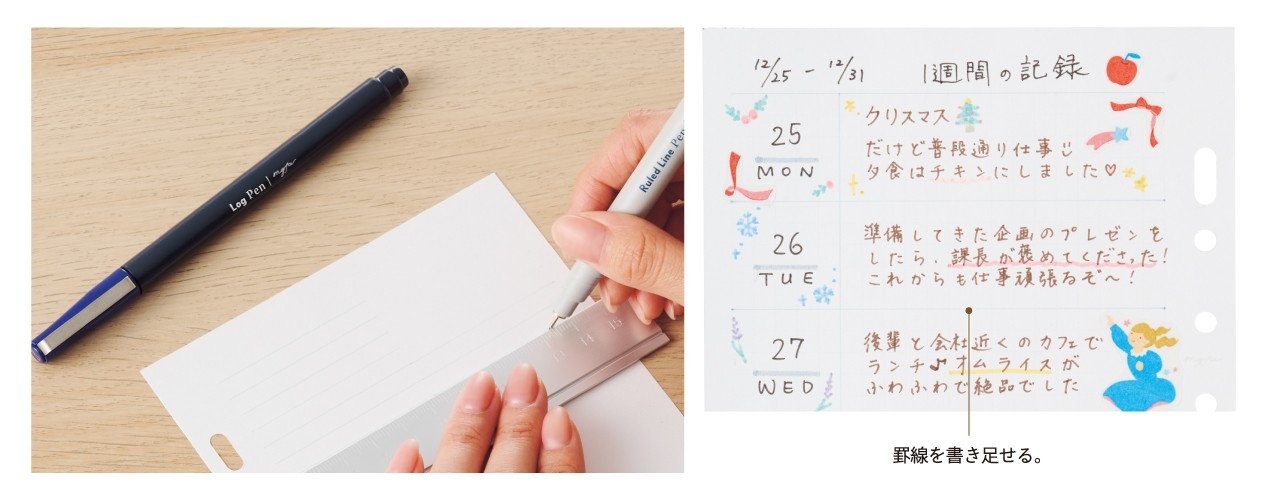 Log Pen | mgn
Ruled Line Pen
13 14 15
12/25 - 12/31 1週間の記録
25
MON
クリスマス
だけど普段通り仕事
夕食はチキンにしました♡
26
TUE
準備してきた企画のプレゼンを
したら、課長が褒めてくださった!
これからも仕事頑張るぞ〜!
27
WED
後輩と会社近くのカフェで
ランチ♪オムライスが
ふわふわで絶品でした
罫線を書き足せる。